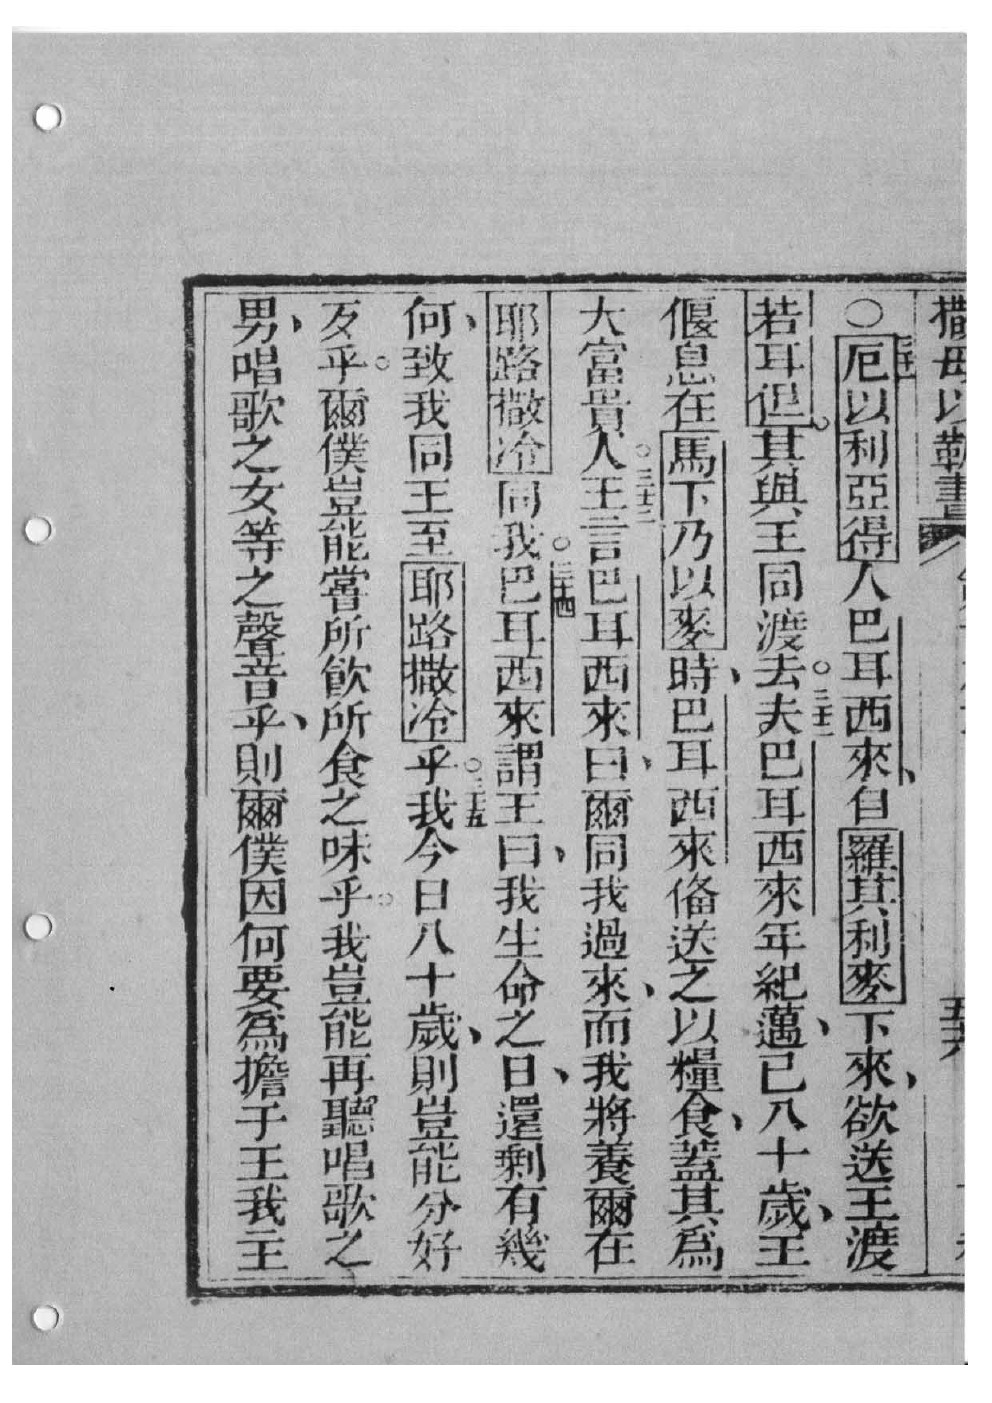 撒母以勒書
○三十一厄以利亞得人巴耳西來、自羅其利麥下來、欲送王渡
若耳但。其與王同渡去。三十二夫巴耳西來年紀邁、已八十歲、王
偃息在馬下乃以麥時、巴耳西來俻送之以糧食、蓋其爲
大富貴人。三十三王言巴耳西來曰、爾同我過來、而我將養爾在
耶路撒冷同我。三十四巴耳西來謂王曰、我生命之日、還剩有幾
何、致我同王至耶路撒冷乎。三十五我今日八十歲、則豈能分好
歹乎。爾僕豈能嘗所飲所食之味乎。我豈能再聽唱歌之
男、唱歌之女等之聲音乎、則爾僕因何要爲擔于王我主